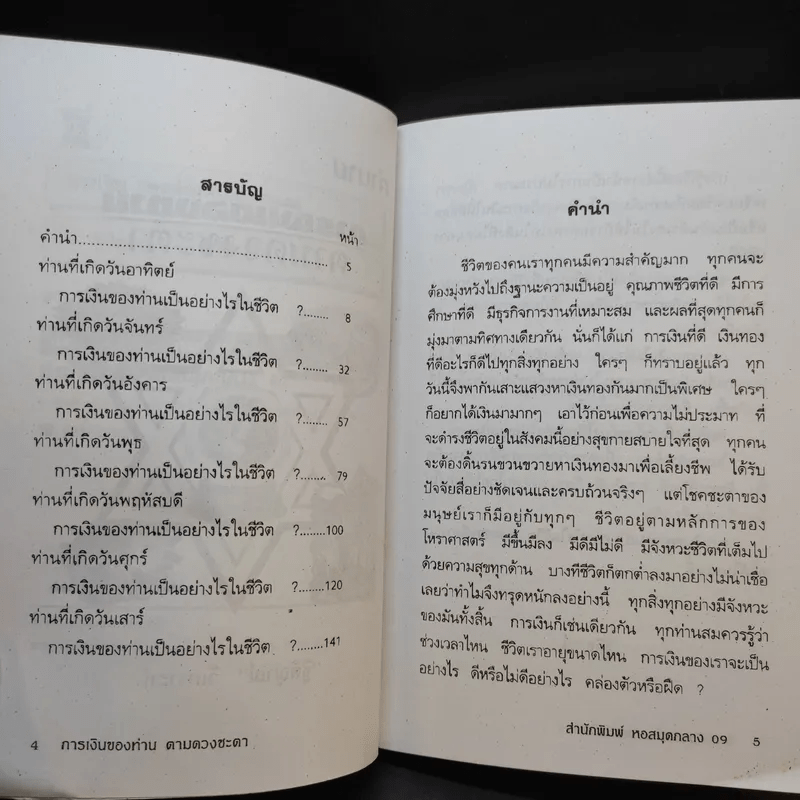 สารบัญ
หน้า
คำนำ.......................................................... 5
ท่านที่เกิดวันอาทิตย์
การเงินของท่านเป็นอย่างไรในชีวิต ?........ 8
ท่านที่เกิดวันจันทร์
การเงินของท่านเป็นอย่างไรในชีวิต ?........ 32
ท่านที่เกิดวันอังคาร
การเงินของท่านเป็นอย่างไรในชีวิต ?........ 57
ท่านที่เกิดวันพุธ
การเงินของท่านเป็นอย่างไรในชีวิต ?........ 79
ท่านที่เกิดวันพฤหัสบดี
การเงินของท่านเป็นอย่างไรในชีวิต ?.......100
ท่านที่เกิดวันศุกร์
การเงินของท่านเป็นอย่างไรในชีวิต ?.......120
ท่านที่เกิดวันเสาร์
การเงินของท่านเป็นอย่างไรในชีวิต ?.......141
4 การเงินของท่าน ตามดวงชะตา
คำนำ
ชีวิตของคนเราทุกคนมีความสำคัญมาก ทุกคนจะ
ต้องมุ่งหวังไปถึงฐานะความเป็นอยู่ คุณภาพชีวิตที่ดี มีการ
ศึกษาที่ดี มีธุรกิจการงานที่เหมาะสม และผลที่สุดทุกคนก็
มุ่งมาตามทิศทางเดียวกัน นั่นก็ได้แก่ การเงินที่ดี เงินทอง
ที่ดีอะไรก็ดีไปทุกสิ่งทุกอย่าง ใครๆ ก็ทราบอยู่แล้ว ทุก
วันนี้จึงพากันเสาะแสวงหาเงินทองกันมากเป็นพิเศษ ใครๆ
ก็อยากได้เงินมามากๆ เอาไว้ก่อนเพื่อความไม่ประมาท ที่
จะดำรงชีวิตอยู่ในสังคมนี้อย่างสุขกายสบายใจที่สุด ทุกคน
จะต้องดิ้นรนขวนขวายหาเงินทองมาเพื่อเลี้ยงชีพ ได้รับ
ปัจจัยสี่อย่างชัดเจนและครบถ้วนจริงๆ แต่โชคชะตาของ
มนุษย์เราก็มีอยู่กับทุกๆ ชีวิตอยู่ตามหลักการของ
โหราศาสตร์ มีขึ้นมีลง มีดีมีไม่ดี มีจังหวะชีวิตที่เต็มไป
ด้วยความสุขทุกด้าน บางทีชีวิตก็ตกต่ำลงมาอย่างไม่น่าเชื่อ
เลยว่าทำไมจึงทรุดหนักลงอย่างนี้ ทุกสิ่งทุกอย่างมีจังหวะ
ของมันทั้งสิ้น การเงินก็เช่นเดียวกัน ทุกท่านสมควรรู้ว่า
ช่วงเวลาไหน ชีวิตเราอายุขนาดไหน การเงินของเราจะเป็น
อย่างไร ดีหรือไม่ดีอย่างไร คล่องตัวหรือฝืด ?
สำนักพิมพ์ หอสมุดกลาง 09 5